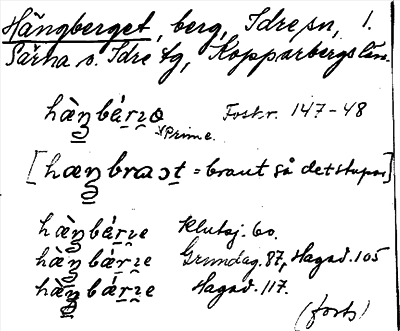 Hängberget, berg, Idre sn, 1.
Särna o. Idre tg, Kopparbergs län.
hæ̀ŋbɛ́rɪe Foskr. 147-48
Prime.
[hæŋbraɔt = braut så det stupar]
hæ̀ŋbǽrɪe Klutsj. 60.
hæ̀ŋbǽrɪe Grundag. 87, Hagåd. 105
hæ̀ŋbǽrɪe Hagåd. 117.
(forts)